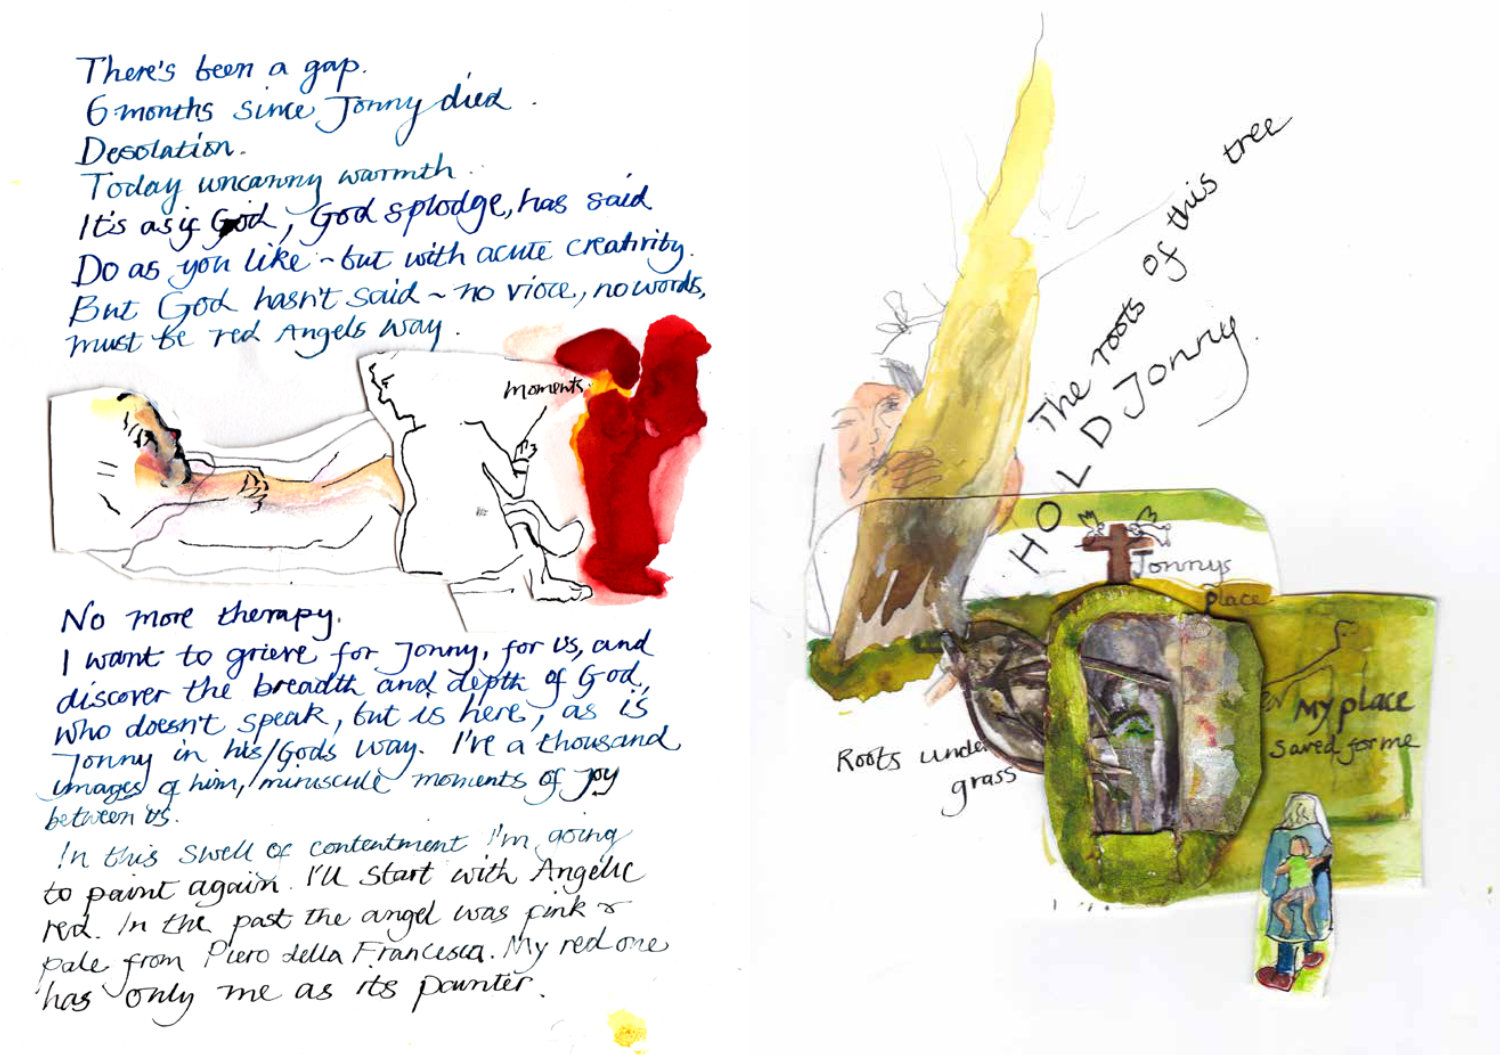 There's been a gap.
6 months since Jonny died.
Desolation.
Today uncanny warmth.
It's as if God, God splodge, has said
Do as you like ~ but with acute creativity.
But God hasn't said ~ no vioce, no words,
must be red Angels way.
moments.
No more therapy.
I want to grieve for Jonny, for us, and
discover the breadth and depth of God,
who doesn't speak, but is here, as is
Jonny in his/Gods way. I've a thousand
images of him, minuscule moments of joy
between us.
In this swell of contentment I'm going
to paint again. I'll start with Angelic
red. In the past the angel was pink &
pale from Piero della Francesca. My red one
has only me as its painter.
The roots of this tree
HOLD Jonny.
Jonnys
place
My place
saved for me
Roots under
grass